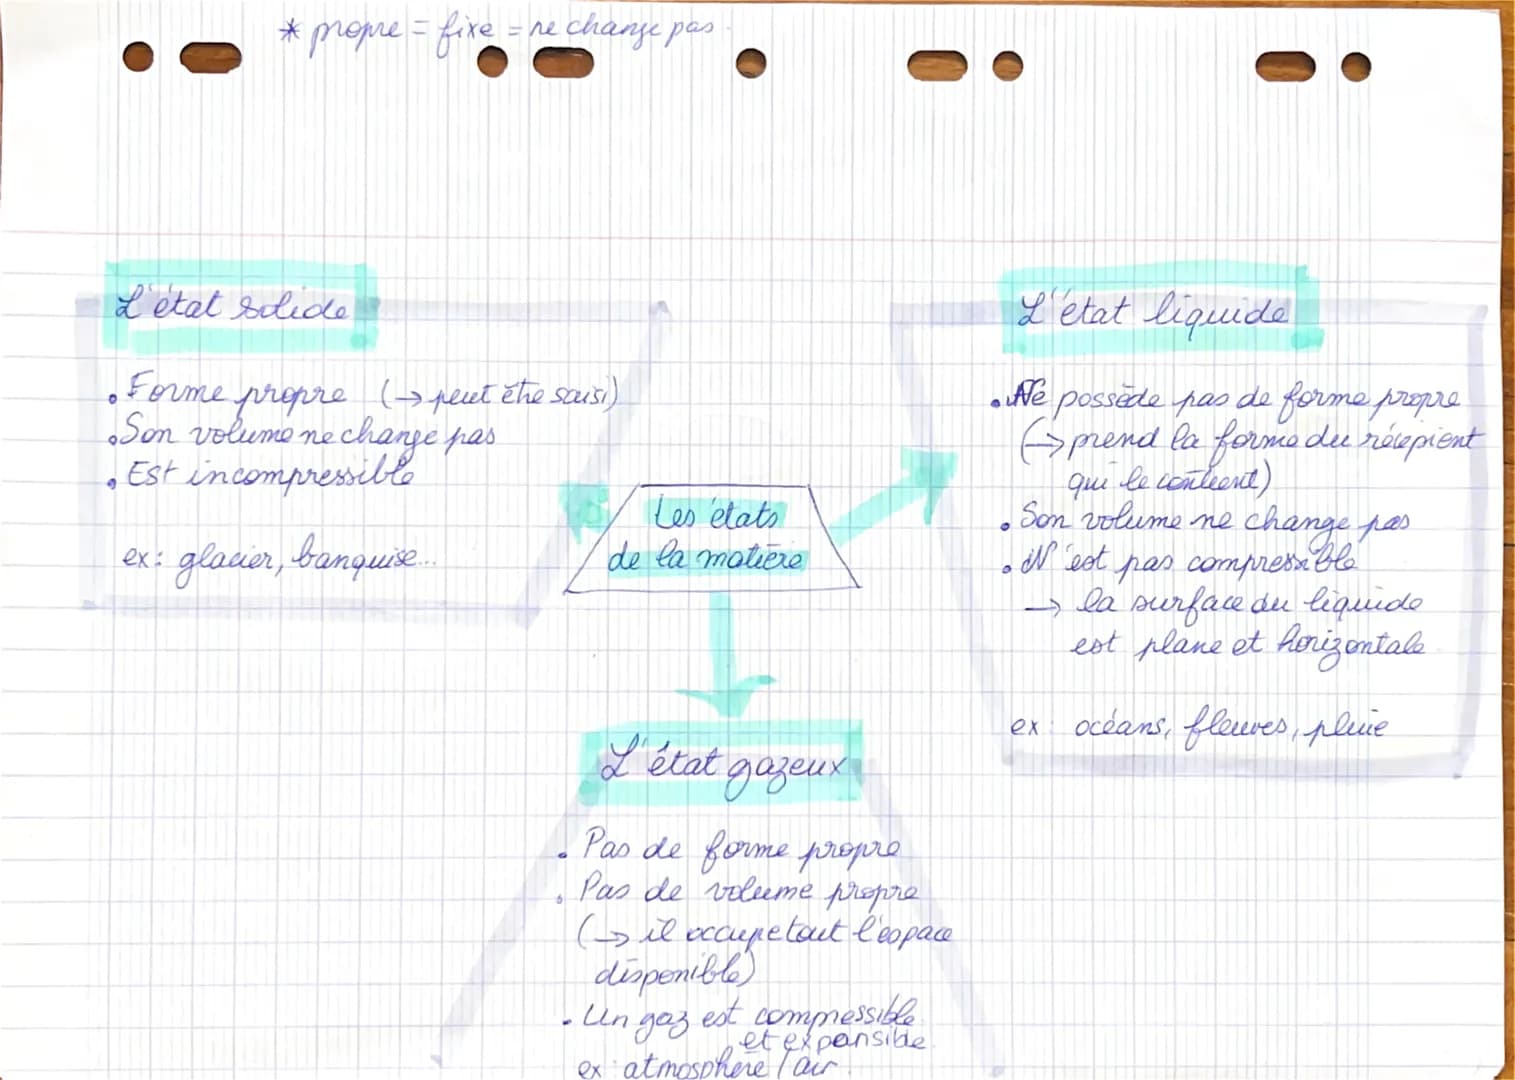 * propre = fixe = ne change pas.
L'état solide
. Forme propre (→ peut être saisi)
. Son volume ne change pas
. Est incompressible
ex: glacier, banquise...
Les états
de la matière
L'état liquide
. Ne possède pas de forme propre
(→ prend la forme du récipient
qui le contient)
. Son volume ne change pas
. N'est pas compressible
→ la surface du liquide
est plane et horizontale
ex: océans, fleuves, pluie
L'état gazeux
. Pas de forme propre
. Pas de volume propre
(→ il occupe tout l'espace
disponible)
. Un gaz est compressible
et expansible.
ex: atmosphère / air.